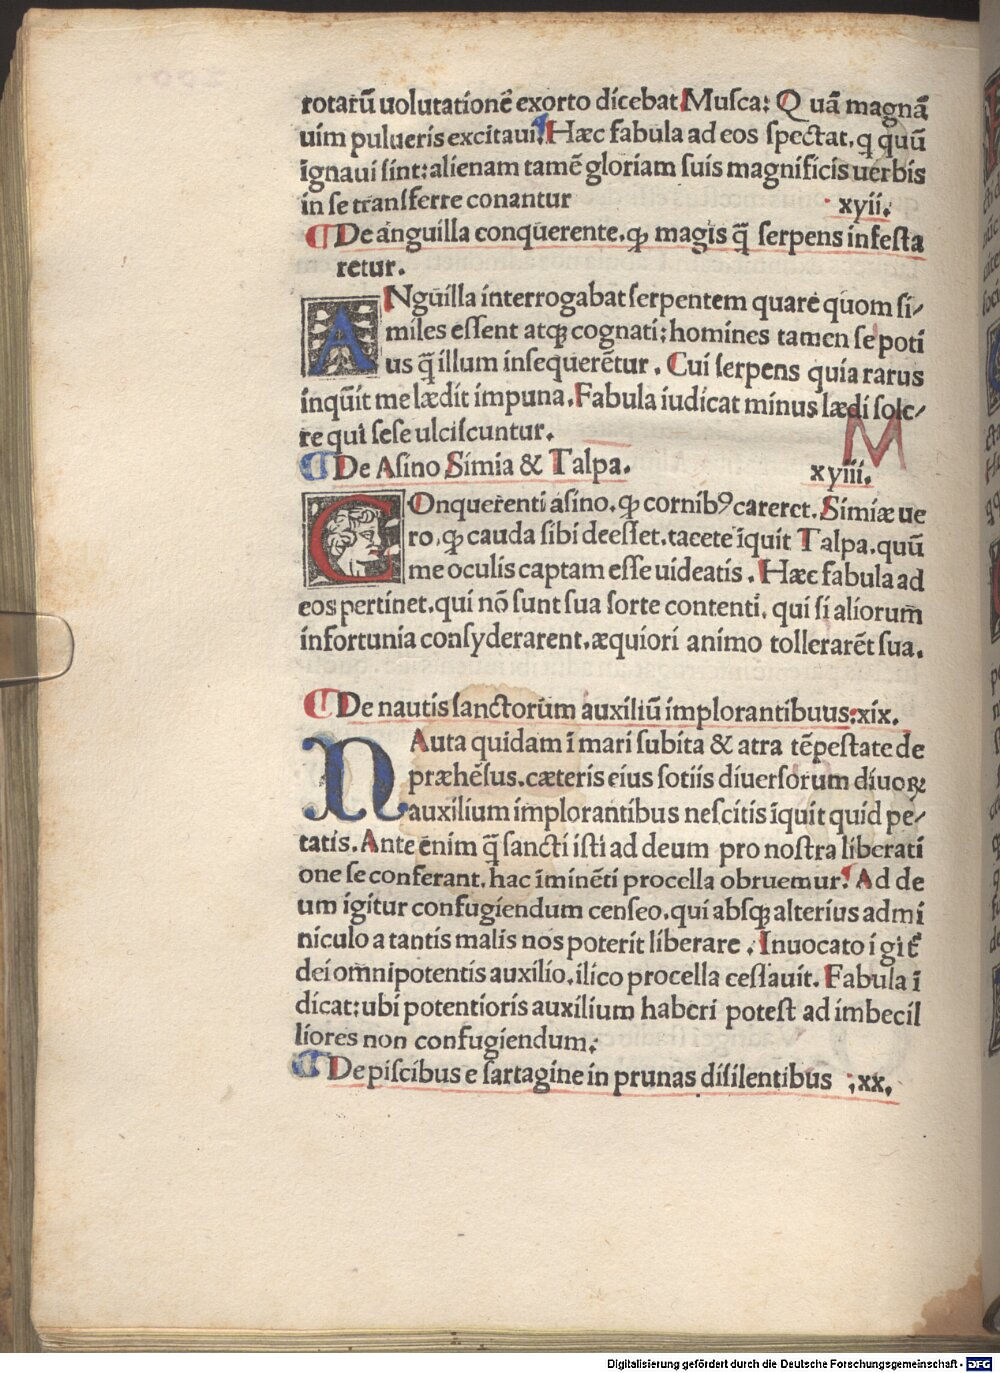 rotarū uolutationē exorto dicebat Musca: Quā magnā
uim pulueris excitaui. Hæc fabula ad eos spectat, ꝙ quū
ignaui sint: alienam tamē gloriam suis magnificis uerbis
in se transferre conantur xvii.
De anguilla conquerente, ꝙ magis q̄ serpens infesta
retur.
ANguilla interrogabat serpentem quare quom si/
miles essent atqꝫ cognati: homines tamen se poti
us q̄ illum insequerētur. Cui serpens quia rarus
inquit me lædit impuna. Fabula iudicat minus lædi sole/
re qui sese ulciscuntur.
De Asino Simia & Talpa. xviii.
M
COnquerenti asino, ꝙ cornibꝰ careret. Simiæ ue
ro, ꝙ cauda sibi deesset. tacete īquit Talpa. quū
me oculis captam esse uideatis. Hæc fabula ad
eos pertinet, qui nō sunt sua sorte contenti, qui si aliorum
infortunia consyderarent, æquiori animo tollerarēt sua.
De nautis sanctorum auxiliū implorantibuus: xix.
NAuta quidam ī mari subita & atra tēpestate de
præhēsus, cæteris eius sotiis diuersorum diuoꝝ
auxilium implorantibus nescitis īquit quid pe/
tatis. Ante enim q̄ sancti isti ad deum pro nostra liberati
one se conferant, hac īminēti procella obruemur. Ad de
um igitur confugiendum censeo, qui absqꝫ alterius admi
niculo a tantis malis nos poterit liberare. Inuocato igit᷑
dei omnipotentis auxilio, ilico procella cessauit. Fabula ī
dicat: ubi potentioris auxilium haberi potest ad imbecil
liores non confugiendum.
De piscibus e sartagine in prunas disilentibus :xx.
Digitalisierung gefördert durch die Deutsche Forschungsgemeinschaft - DFG